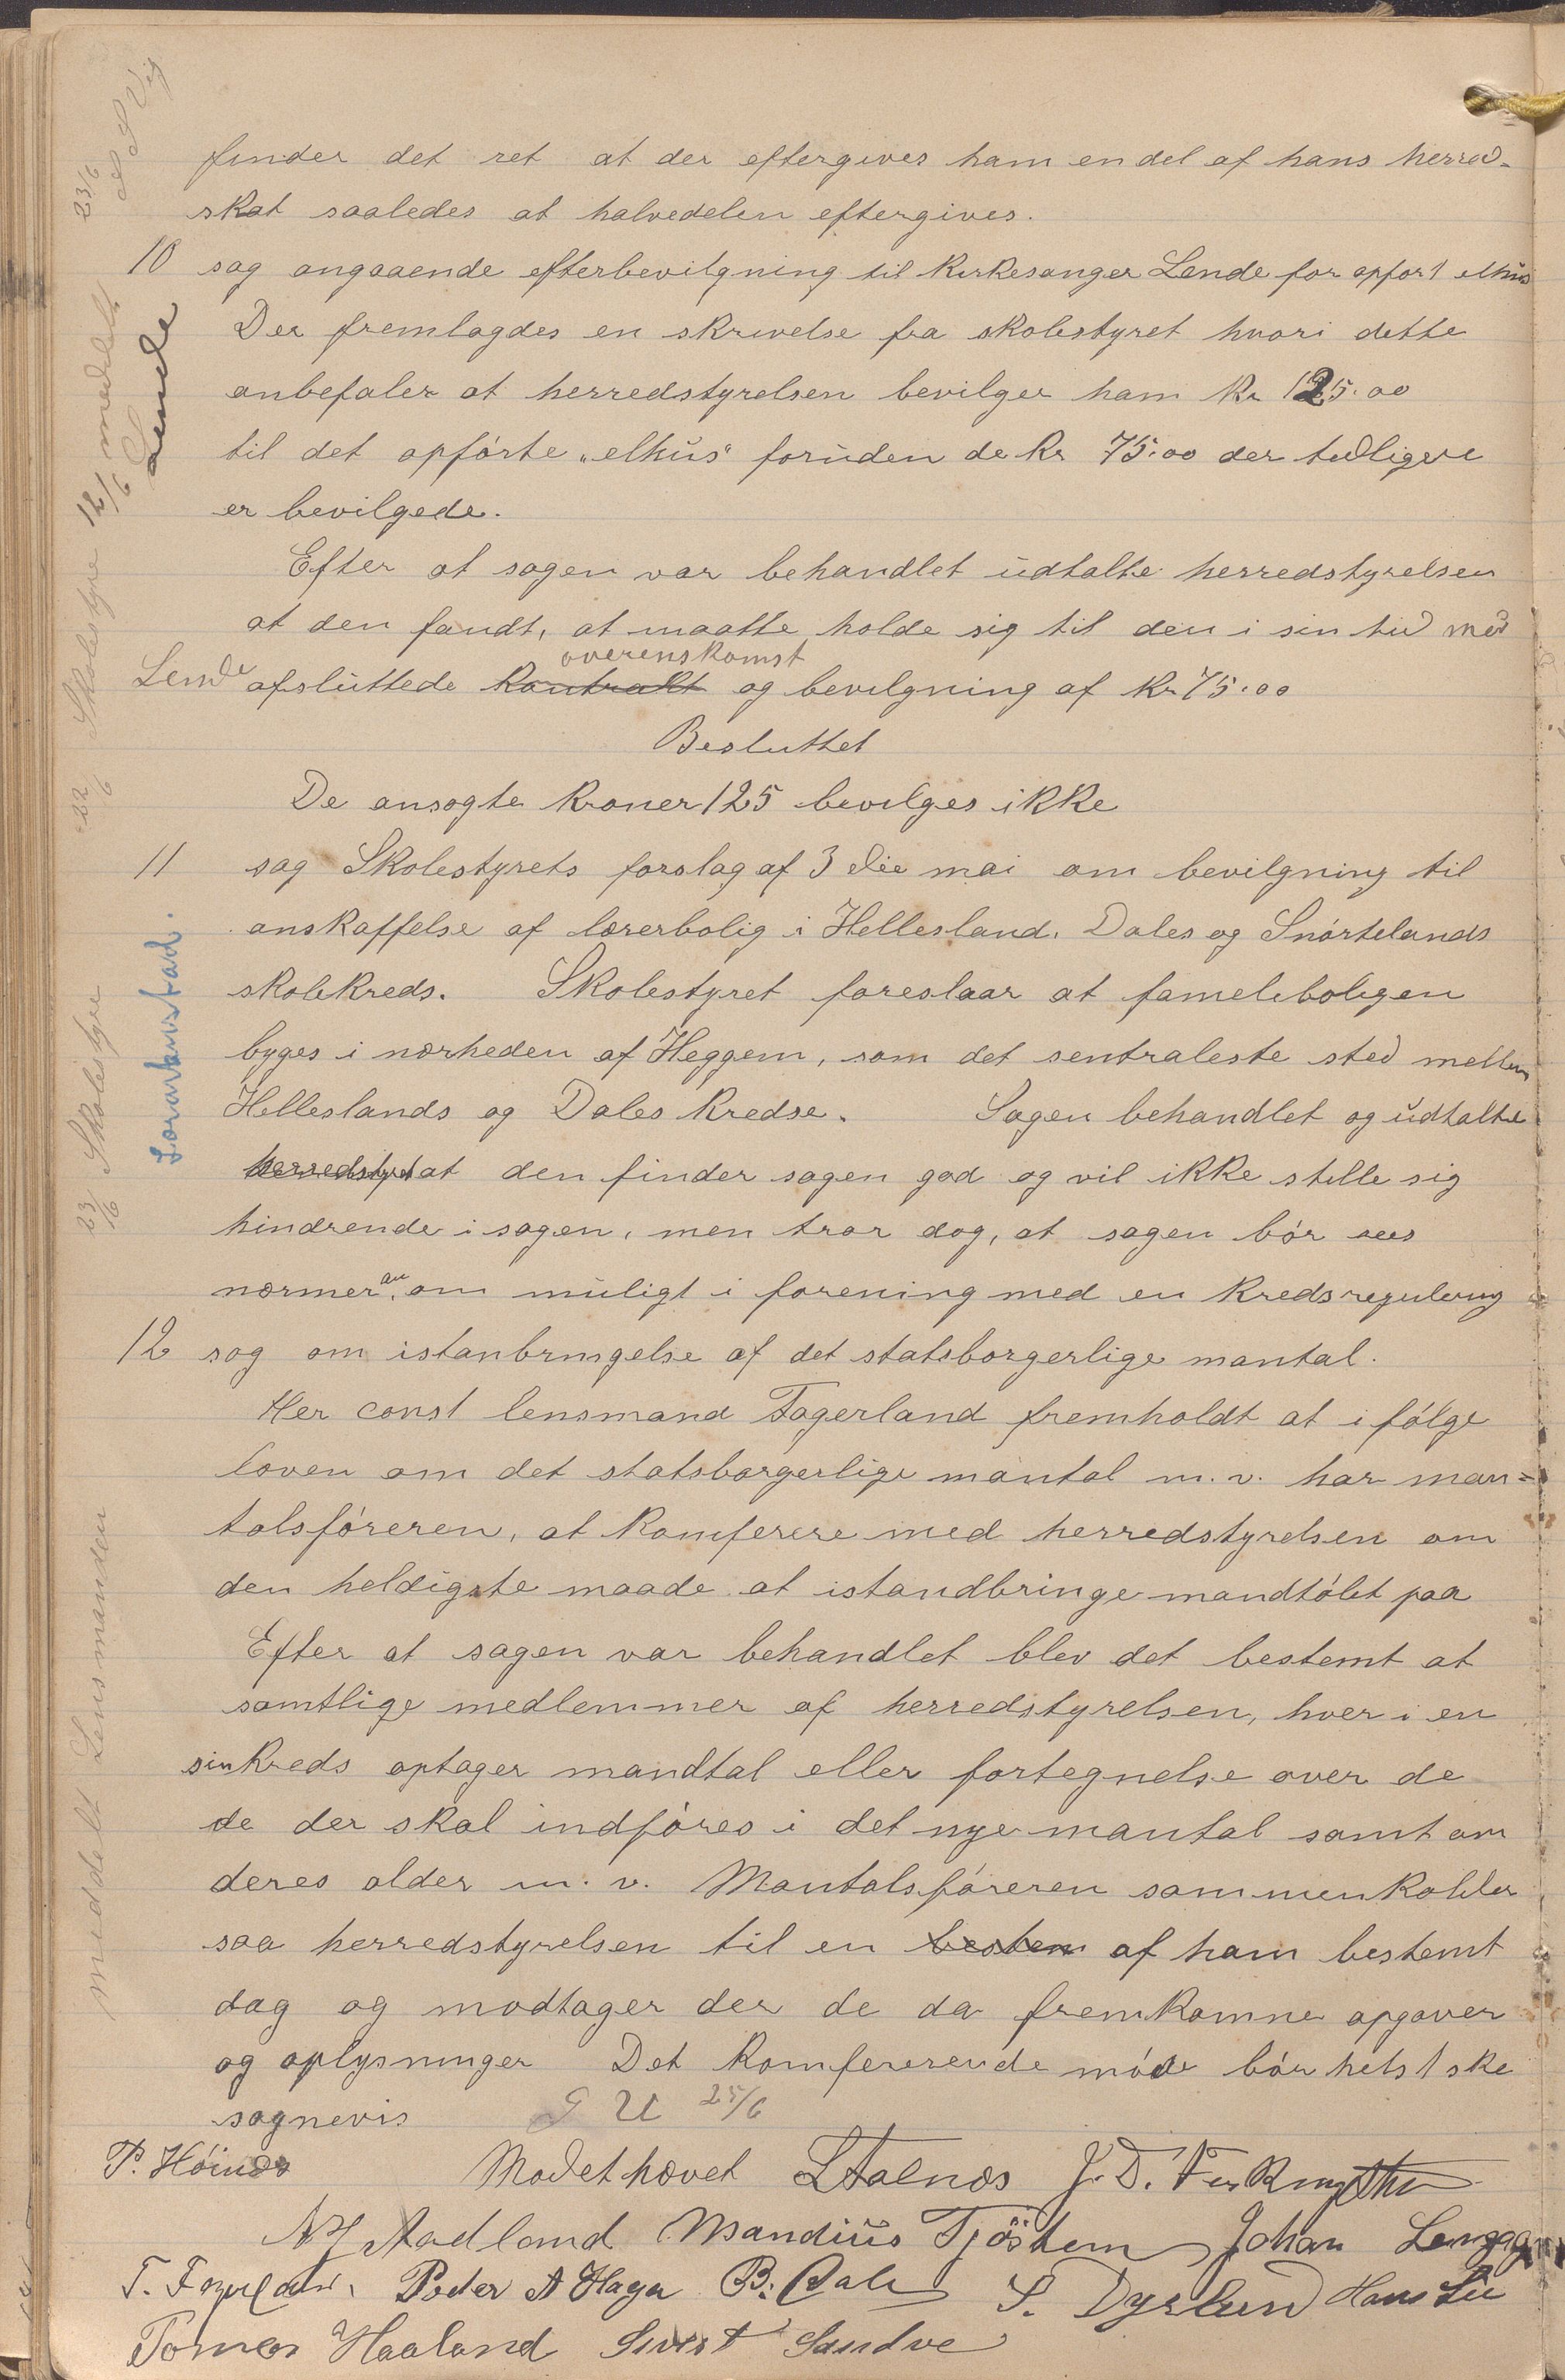 finder det ret at der eftergives ham en del af hans herred-
skat saaledes at halvedelen eftergives.
10 sag angaaende efterbevilgning til Kirkesanger Lende for opfort elhus
Der fremlagdes en skrivelse fra skolestyret hvori dette
anbefaler at herredstyrelsen bevilger ham Kr 125.00
til det opførte "elhus" foruden de Kr 75.00 der tidligere
er bevilgede.
Efter at sagen var behandlet udtalte herredstyrelsen
at den fandt, at maatte holde sig til den i sin tid med
overenskomst
Lende afsluttede Kontrakt og bevilgning af Kr 75.00
Besluttet
De ansøgte Kroner 125 bevilges ikke
11 sag Skolestyrets forslag af 3 die mai om bevilgning til
anskaffelse af lærerbolig i Hellesland, Dales og Snørtelands
skolekreds. Skolestyret foreslaar at familieboligen
byges i nærheden af Heggem, som det sentraleste sted mellem
Helleslands og Dales Kredse. Sagen behandlet og udtalte
herredstyret at den finder sagen god og vil ikke stille sig
hindrende i sagen, men tror dog, at sagen bør sees
nærmer an, om muligt i forening med en Kredsregulering
12 sag om istanbringelse af det statsborgerlige mantal.
Her const lensmand Fagerland fremholdt at i følge
loven om det statsborgerlige mantal m.v. har man=
talsføreren, at Komferere med herredstyrelsen om
den heldigste maade at istandbringe mandtalet paa
Efter at sagen var behandlet blev det bestemt at
samtlige medlemmer af herredstyrelsen, hver i en
sin Kreds optager mandtal eller fortegnelse over de
de der skal indføres i det nye mantal samt om
deres alder m.v. Mantalsføreren sammenkalder
saa herredstyrelsen til en besten af ham bestemt
dag og modtager der de da fremkomne opgaver
og oplysninger Det Komfererende møde bør helst ske
sognevis G U 25/6
P. Höinæs Modet hævet L Aalnæs J. D.
Aadland Mandius Tjöstem Johan
Peder A Haga B. Dale S. Dyrlund Hans Lie
Tomas Haaland Sivert Sandve
23/6
12/6 meddelt
Lende
22/6 Skolestyre
23/6 Skolestyre
meddelt Lensmanden